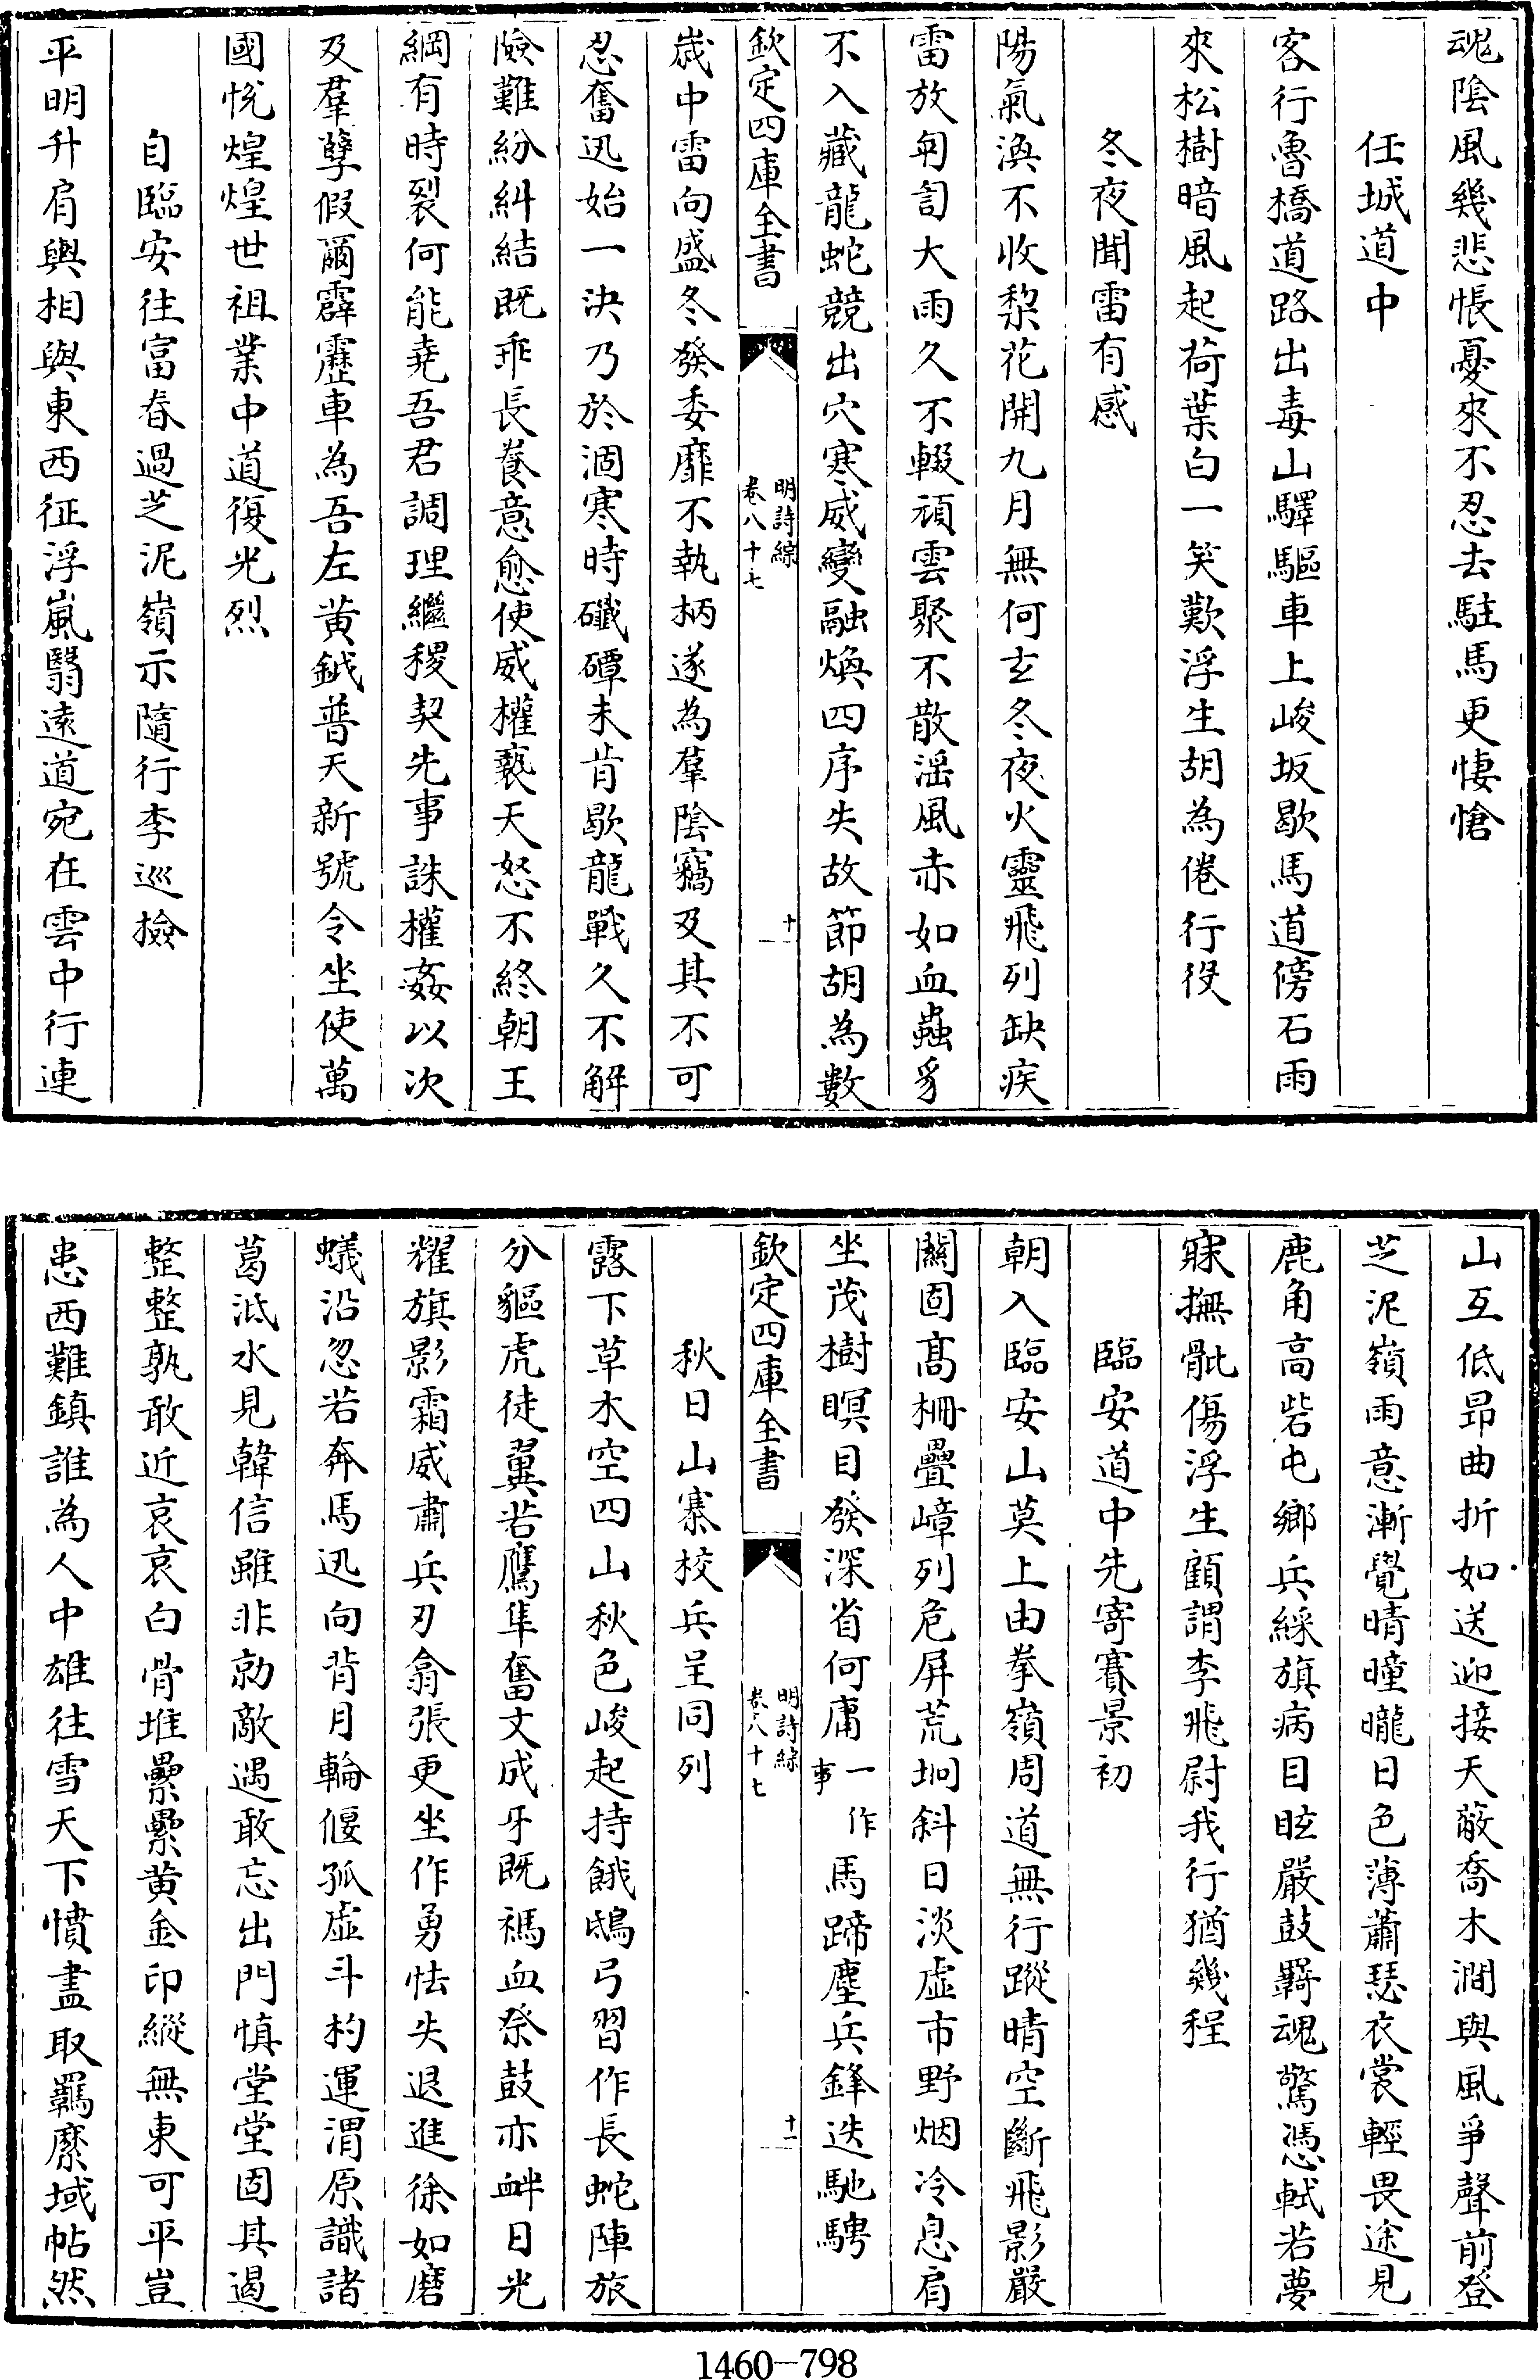 魂陰風幾悲悵憂來不忍去駐馬更悽愴
任城道中
客行魯橋道路出毒山驛驅車上峻坂歇馬道傍石雨
來松樹暗風起荷葉白一笑歎浮生胡為倦行役
冬夜聞雷有感
陽氣渙不收棃花開九月無何玄冬夜火靈飛列缺疾
雷放匉訇大雨久不輟頑雲聚不散滛風赤如血蟲豸
不入藏龍蛇競出穴寒威變融煥四序失故節胡為數
欽定四庫全書
明詩綜
卷八十七
十一
歲中雷向盛冬發委靡不執柄遂為羣陰竊及其不可
忍奮迅始一決乃於涸寒時礮磹未肯歇龍戰久不解
險難紛糾結既乖長養意愈使威權褻天怒不終朝王
綱有時裂何能堯吾君調理繼稷契先事誅權姦以次
及羣孽假爾霹靂車為吾左黄鉞普天新號令坐使萬
國恱煌煌世祖業中道復光烈
自臨安往富春過芝泥嶺示隨行李巡撿
平明升肩輿相與東西征浮嵐翳遠道宛在雲中行連
山互低昂曲折如送迎接天蔽喬木澗與風爭聲前登
芝泥嶺雨意漸覺晴曈曨日色薄蕭瑟衣裳輕畏途見
鹿角高砦屯鄉兵綵旗病目眩嚴鼓羇魂驚憑軾若夢
寐撫髀傷浮生顧謂李飛尉我行猶幾程
臨安道中先寄賽景初
朝入臨安山莫上由拳嶺周道無行蹤晴空斷飛影嚴
關固髙柵疊嶂列危屏荒坰斜日淡虛市野烟冷息肩
坐茂樹瞑目發深省何庸一作事馬蹄塵兵鋒迭馳騁
欽定四庫全書
明詩綜
卷八十七
十二
秋日山寨校兵呈同列
露下草木空四山秋色峻起持餓鴟弓習作長蛇陣旅
分貙虎徒翼若鷹隼奮文成牙既禡血祭鼓亦衅日光
耀旗影霜威肅兵刃翕張更坐作勇怯失退進徐如磨
蟻沿忽若奔馬迅向背月輪偃孤虛斗杓運渭原識諸
葛泜水見韓信雖非勍敵遇敢忘出門慎堂堂固其遏
整整孰敢近哀哀白骨堆纍纍黄金印縱無東可平豈
患西難鎮誰為人中雄往雪天下憤盡取羈縻域帖然
1460-798